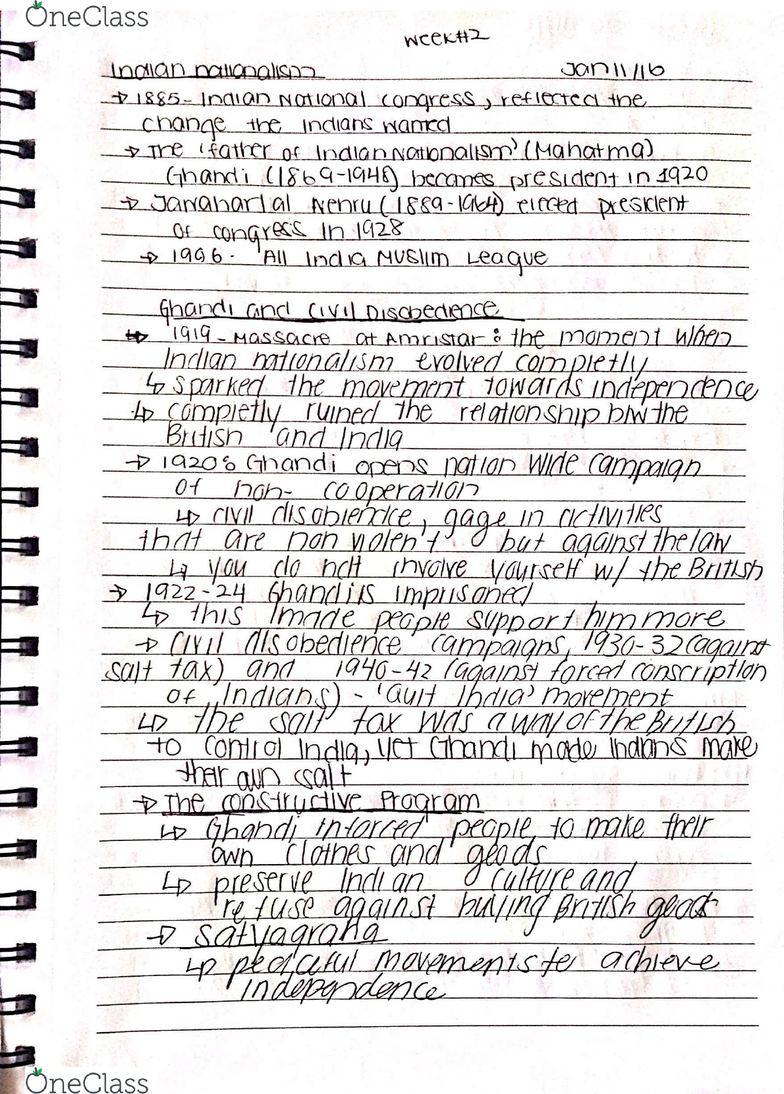 OneClass
WEEK#2
Indian nationalism Jan 11/16
→ 1885 - Indian National congress, reflected the
change the Indians wanted
→ The 'father of Indian Nationalism' (Mahatma)
Ghandi (1869-1948) becomes president in 1920
→ Janaharlal Nehru (1889-1964) elected president
of congress in 1928
→ 1906 - All India Muslim League
Ghandi and Civil Disobedience
→ 1919 - Massacre at Amristar : the moment when
Indian nationalism evolved completly
↳ sparked the movement towards independence
↳ completly ruined the relationship b/w the
British and India
→ 1920: Ghandi opens nation wide campaign
of non-cooperation
↳ civil disobience, gage in activities
that are non violent but against the law
↳ you do not involve yourself w/ the British
→ 1922-24 Ghandi is imprisoned
↳ this made people support him more
→ Civil disobedience campaigns, 1930-32 (against
salt tax) and 1940-42 (against forced conscription
of Indians) - 'Quit India' movement
↳ the salt tax was a way of the British
to control India, yet Ghandi made Indians make
their own salt
→ The constructive Program
↳ Ghandi inforced people to make their
own clothes and goods
↳ preserve Indian culture and
refuse against buying British goods
→ Satyagraha
↳ peaceful movements to achieve
independence
OneClass